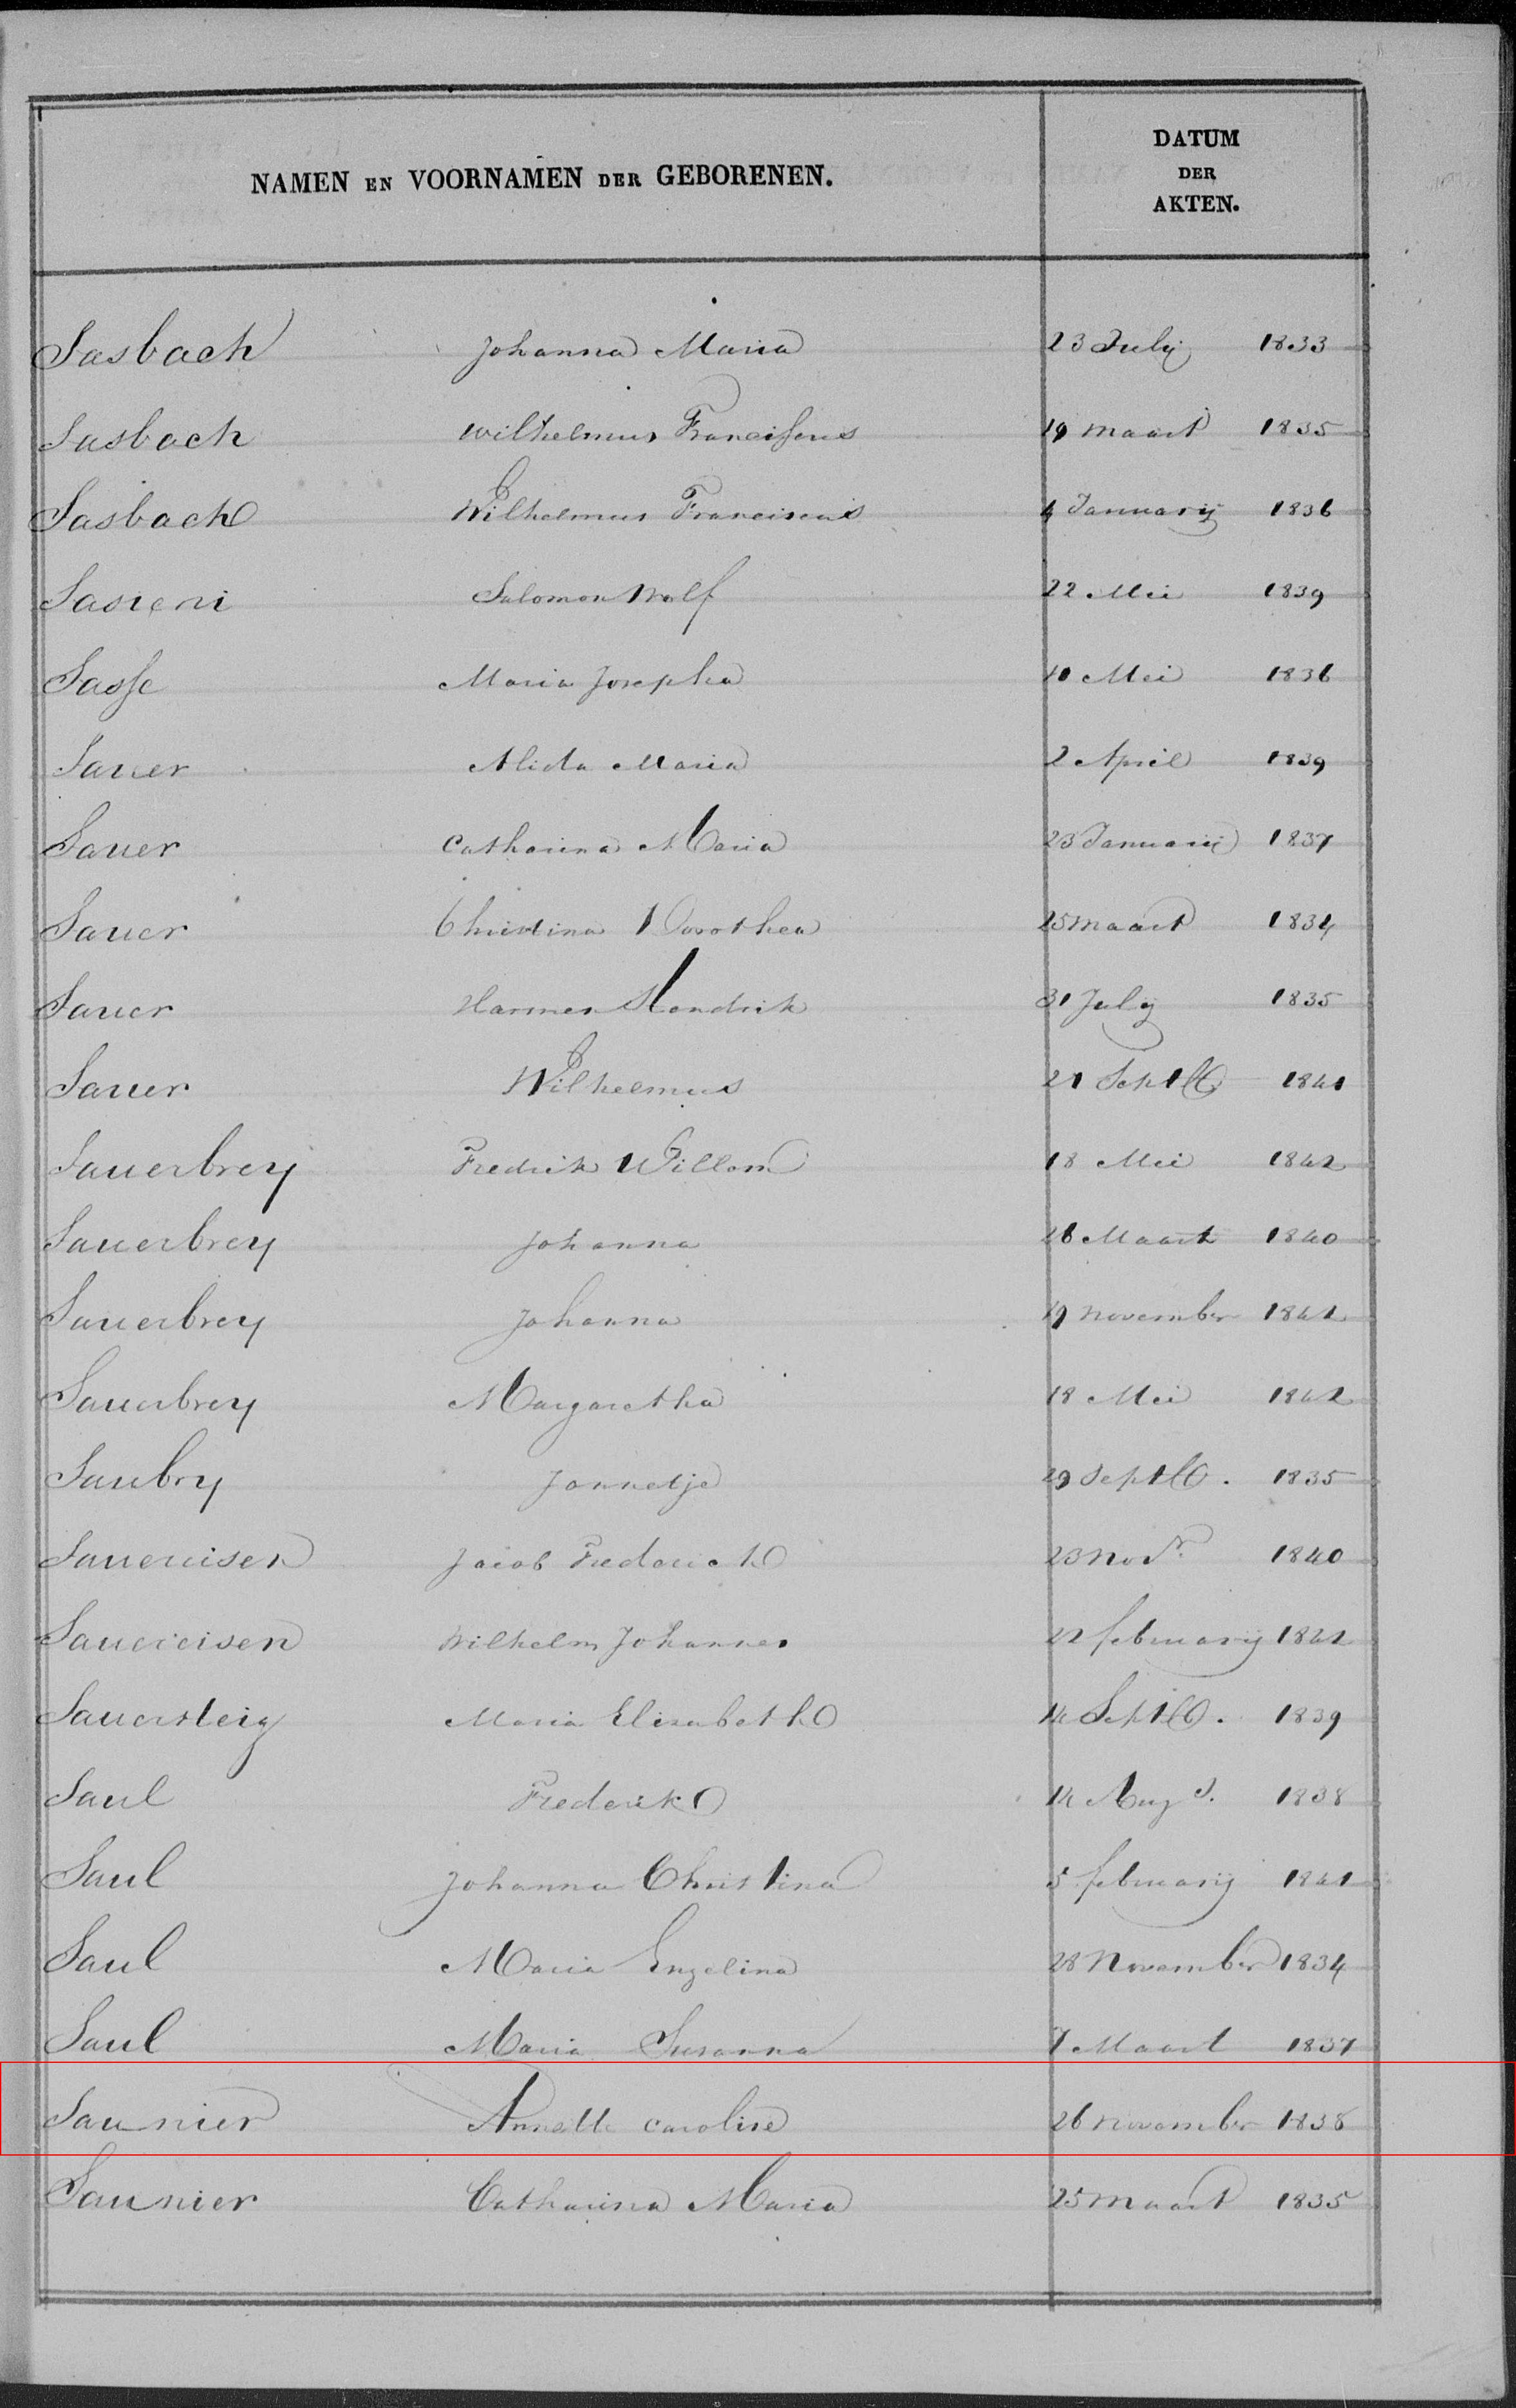 NAMEN EN VOORNAMEN DER GEBORENEN.
DATUM
DER
AKTEN.
Sasbach Johanna Maria 23 July 1833
Sasbach Wilhelmus Franciscus 19 maart 1835
Sasbach Wilhelmus Franciscus 4 Januarij 1836
Sasieni Salomon Wolf 22 Mei 1839
Sasse Maria Josepha 10 Mei 1836
Sauer Alida Maria 2 April 1839
Sauer Catharina Maria 23 Januarij 1837
Sauer Christina Dorothea 25 maart 1834
Sauer Harmen Hendrik 31 July 1835
Sauer Wilhelmus 21 Septb 1841
Sauerbrey Fredrik Willem 18 Mei 1842
Sauerbrey Johanna 26 Maart 1840
Sauerbrey Johanna 19 november 1841
Sauerbrey Margaretha 18 Mei 1842
Saubry Jannetje 29 Septb. 1835
Saueruisen Jacob Frederick 23 Nov. 1840
Saucicisen Wilhelm Johannes 22 februarij 1842
Sauersteig Maria Elisabeth 14 Septb. 1839
Saul Frederik 14 Augs. 1838
Saul Johanna Christina 5 februarij 1841
Saul Maria Engelina 28 November 1834
Saul Maria Susanna 7 Maart 1837
Saunier Annette caroline 26 november 1838
Saunier Catharina Maria 25 maart 1835